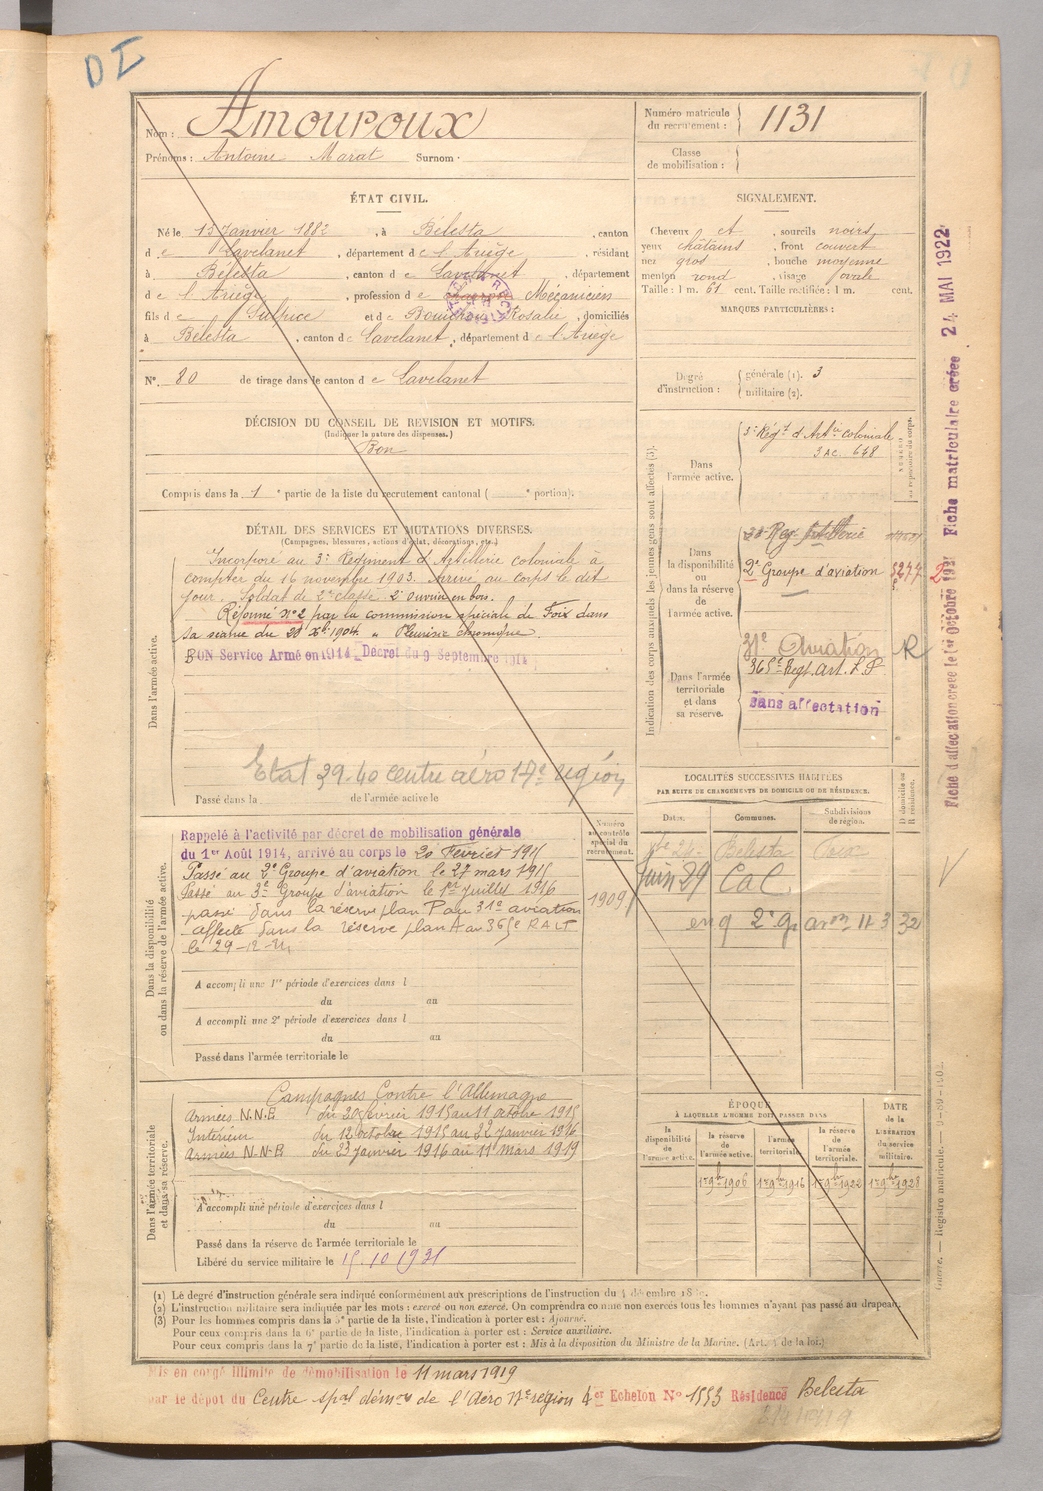 DI
Nom : Amouroux
Prénoms : Antoine Marat Surnom :
Numéro matricule du recrutement : 1131
Classe de mobilisation :
ÉTAT CIVIL.
Né le 13 Janvier 1882, à Bélesta, canton
de Lavelanet, département de l'Ariège, résidant
à Bélesta, canton de Lavelanet, département
de l'Ariège, profession de Mécanicien
fils de Sulpice et de Rosalie, domiciliés
à Bélesta, canton de Lavelanet, département de l'Ariège
N° 80 de tirage dans le canton de Lavelanet
SIGNALEMENT.
Cheveux et, sourcils noirs
yeux châtains, front couvert
nez gros, bouche moyenne
menton rond, visage ovale
Taille : 1 m. 61 cent. Taille rectifiée : 1 m. cent.
MARQUES PARTICULIÈRES :
Degré d'instruction : générale (1). 3
militaire (2).
DÉCISION DU CONSEIL DE REVISION ET MOTIFS.
(Indiquer la nature des dispenses.)
Bon
Compris dans la 1e partie de la liste du recrutement cantonal ( e portion).
DÉTAIL DES SERVICES ET MUTATIONS DIVERSES.
(Campagnes, blessures, actions d'éclat, décorations, etc.)
Dans l'armée active.
Incorporé au 3e Régiment d'Artillerie coloniale à
compter du 16 novembre 1903. Arrivé au corps le dit
jour. Soldat de 2e classe. 2e ouvrier en bois.
Réformé n°2 par la commission spéciale de Foix dans
sa séance du 20 Xbre 1904. " Pleurésie chronique.
BON Service Armé en 1914 _ Décret du 9 Septembre 1914
Etat 39-40 centre aéro 17e région
Passé dans la de l'armée active le
Indication des corps auxquels les jeunes gens sont affectés (3).
Dans l'armée active.
3e Régt d'Artie coloniale
3 AC. 648
Dans la disponibilité ou dans la réserve de l'armée active.
Reg Artillerie
2e Groupe d'aviation 5277
Dans l'armée territoriale et dans sa réserve.
31e Aviation R
365e Regt. Art. L P
Sans affectation
Fiche d'affectation créée le 1er Octobre 1931 Fiche matriculaire créée 24 MAI 1922
LOCALITÉS SUCCESSIVES HABITÉES
PAR SUITE DE CHANGEMENTS DE DOMICILE OU DE RÉSIDENCE.
Dates. Communes. Subdivisions de région. D domicile ou R résidence.
Belesta Foix
Juin 29 CaC
Dans la disponibilité ou dans la réserve de l'armée active.
Numéro au contrôle spécial du recrutement.
1909
Rappelé à l'activité par décret de mobilisation générale
du 1er Août 1914, arrivé au corps le 20 Février 1915
Passé au 2e Groupe d'aviation le 27 mars 1915
Passé au 3e Groupe d'aviation le 1er juillet 1916
passé dans la réserve plan P au 31e aviation
affecté dans la réserve plan A au 365e RALT
le 29-12-
A accompli une 1re période d'exercices dans l
du au
A accompli une 2e période d'exercices dans l
du au
Passé dans l'armée territoriale le
Dans l'armée territoriale et dans sa réserve.
Campagnes Contre l'Allemagne
Armées N.N.E du 20 février 1915 au 11 octobre 1915
Intérieur du 12 octobre 1915 au 22 janvier 1916
Armées N-N-E du 23 janvier 1916 au 11 mars 1919
A accompli une période d'exercices dans l
du au
Passé dans la réserve de l'armée territoriale le
Libéré du service militaire le 15.10.1931
ÉPOQUE
À LAQUELLE L'HOMME DOIT PASSER DANS
la disponibilité de l'armée active. la réserve de l'armée active. l'armée territoriale. la réserve de l'armée territoriale. DATE de la LIBÉRATION du service militaire.
1er 9bre 1906 1er 9bre 1916 1er 9bre 1922 1er 9bre 1928
(1) Le degré d'instruction générale sera indiqué conformément aux prescriptions de l'instruction du 4 décembre
(2) L'instruction militaire sera indiquée par les mots : exercé ou non exercé. On comprendra comme non exercés tous les hommes n'ayant pas passé au drapeau.
(3) Pour les hommes compris dans la 5e partie de la liste, l'indication à porter est : Ajourné.
Pour ceux compris dans la 6e partie de la liste, l'indication à porter est : Service auxiliaire.
Pour ceux compris dans la 7e partie de la liste, l'indication à porter est : Mis à la disposition du Ministre de la Marine. (Art. 4 de la loi.)
Mis en congé illimité de démobilisation le 11 mars 1919
par le dépôt du Centre de l'Aéro 17e région 4er Echelon N° 1553 Résidence Belesta